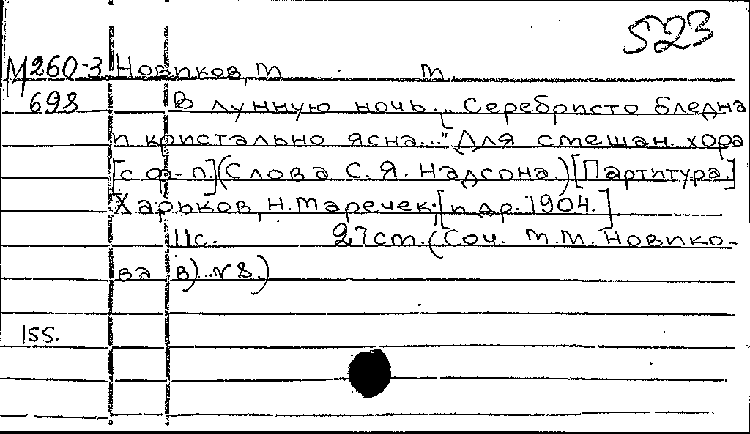 523
М260-3 Новиков, М М.
698 В лунную ночь. „Серебристо бледна
и кристально ясна..." Для смешан. хора
[с ф-п] (Слова С. Я. Надсона.) [Партитура.]
Харьков, Н. Маречек. [п др. 1904.]
11с. 27cm. (Соч. М. М. Новико-
ва в) .. № 8.)
155.